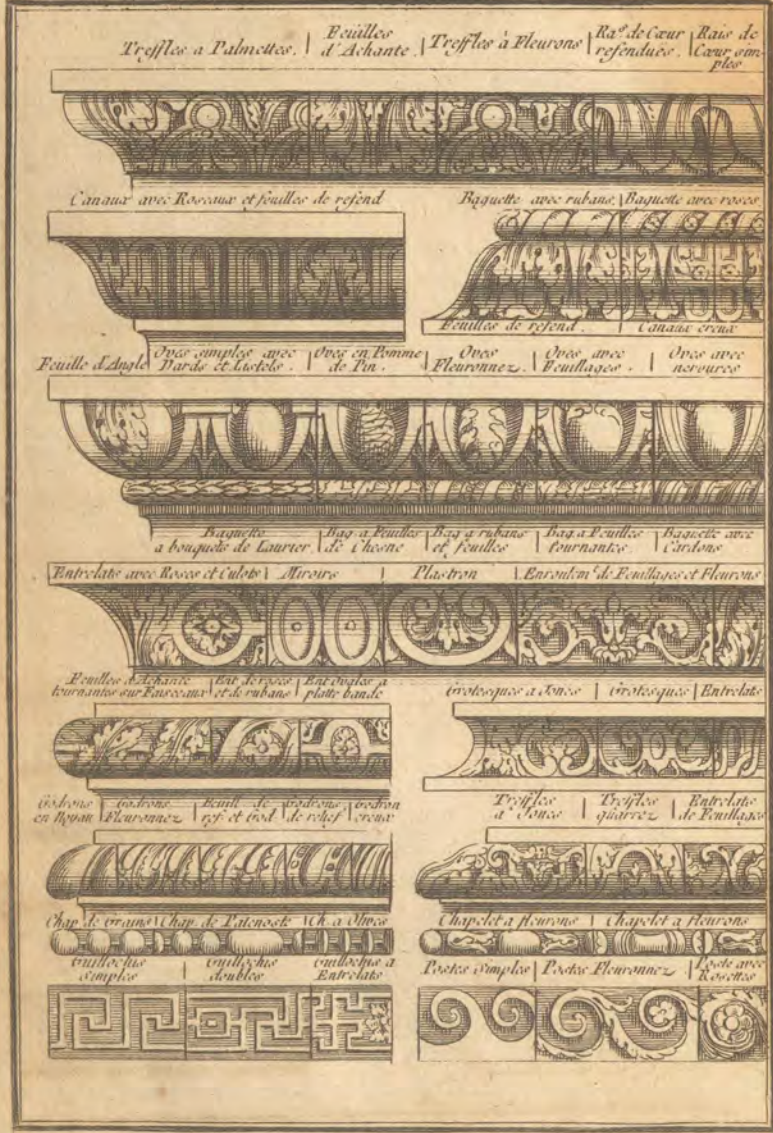 Treffles a Palmettes. | Feuilles d'Achante. | Treffles à Fleurons | Ra.s de Cœur refendues. | Rais de Cœur simples
Canaux avec Roseaux et feuilles de refend
Baguette avec rubans. | Baguette avec roses.
Feuilles de refend. Canaux creux
Feuille d'Angle | Oves simples avec Dards et Listels. | Oves en Pomme de Pin. | Oves Fleuronnez. | Oves avec Feuillages. | Oves avec nervures
Baguette a bouquets de Laurier. | Bag. a Feuilles de Chesne | Bag. a rubans et feuilles | Bag. a Feuilles tournantes. | Baguette avec Cardons
Entrelats avec Roses et Culots | Miroirs | Plastron | Enroulem.t de Feuillages et Fleurons
Feuilles d'Achante tournantes sur Faisceaux | Ent. de roses et de rubans | Ent. Ovales a platte bande
Grotesques a Joncs | Grotesques | Entrelats
Godrons en Noyau | Godrons Fleuronnez | Feuill. de ref. et God. | Godrons de relief | Godron creux
Treffles a Joncs | Treffles quarrez | Entrelats de Feuillages
Chap. de Grains | Chap. de Patenoste | Ch. a Olives
Chapelet a fleurons | Chapelet a fleurons
Guillochis simples | Guillochis doubles | Guillochis a Entrelats
Postes simples | Postes Fleuronnez | Poste avec Rosettes